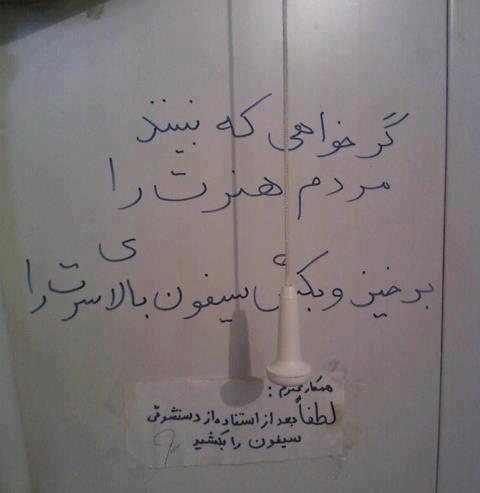 گر خواهی که نبینند
مردم هنرت را
برخیز و بکش سیفون بالای سرت را
همکار محترم :
لطفاً بعد از استفاده از دستشوئی
سیفون را بکشید